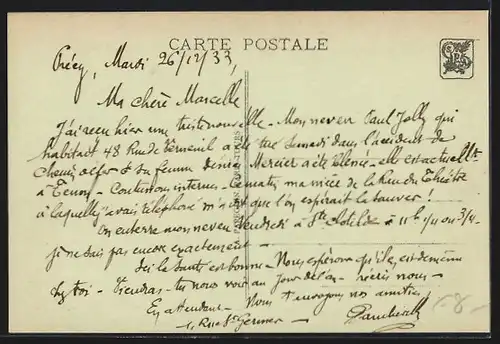 CARTE POSTALE
Précy, Mardi 26/12/33,
Ma chère Marcelle
J'ai reçu hier une triste nouvelle - Mon neveu Paul Jolly qui
habitait 48 Rue de Verneuil a été tué samedi dans l'accident de
chemin de fer & sa femme Mercier a été blessé - elle est actuellt
à Tenon - Contusions internes - Ce matin ma nièce de la Rue du Théâtre
à laquelle j'avais téléphoné m'a dit que l'on espérait la sauver !
on enterre mon neveu Vendredi à Ste Clotilde à 11h 1/4 ou 3/4 -
je ne sais pas encore exactement -
Ici la santé est bonne - Nous espérons qu'il en est de même
chez toi - Viendras-tu nous voir au Jour de l'an - écris nous -
En attendant - Nous t'envoyons nos amitiés
1, Rue St Germer -